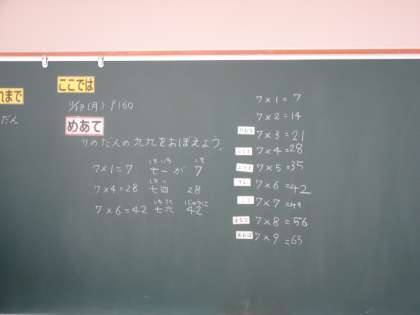 れまで
だん
ここでは
(月) P160
めあて
7のだんの九九をおぼえよう。
7×1=7 七一が 7
7×4=28 七四 28
7×6=42 七六 42
7×1=7
7×2=14
7×3=21
7×4=28
7×5=35
7×6=42
7×7=49
7×8=56
7×9=63